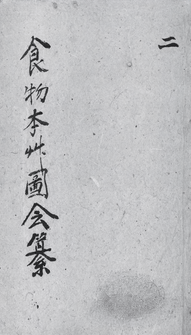 二
食物本艸圖会纂